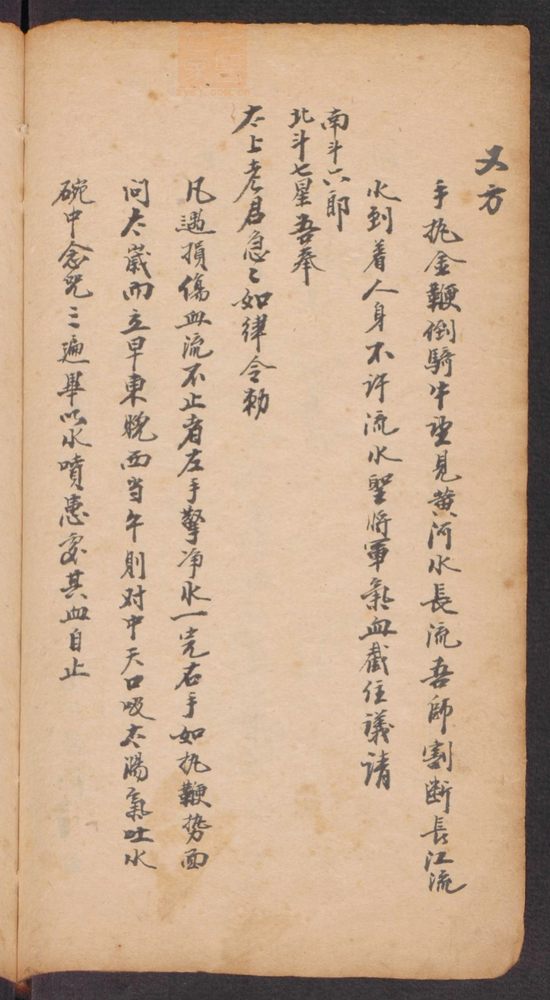 又方
手执金鞭倒騎牛望見黃河水長流吾師割断長江流
水到着人身不许流水聖將軍氣血截住議請
南斗六郎
北斗七星吾奉
太上老君急〻如律令勅
凡遇損傷血流不止者左手擎净水一完右手如执鞭势面
问太嵗而立早東晚西当午則对中天口吸太陽氣吐水
碗中念咒三遍畢以水噴患處其血自止